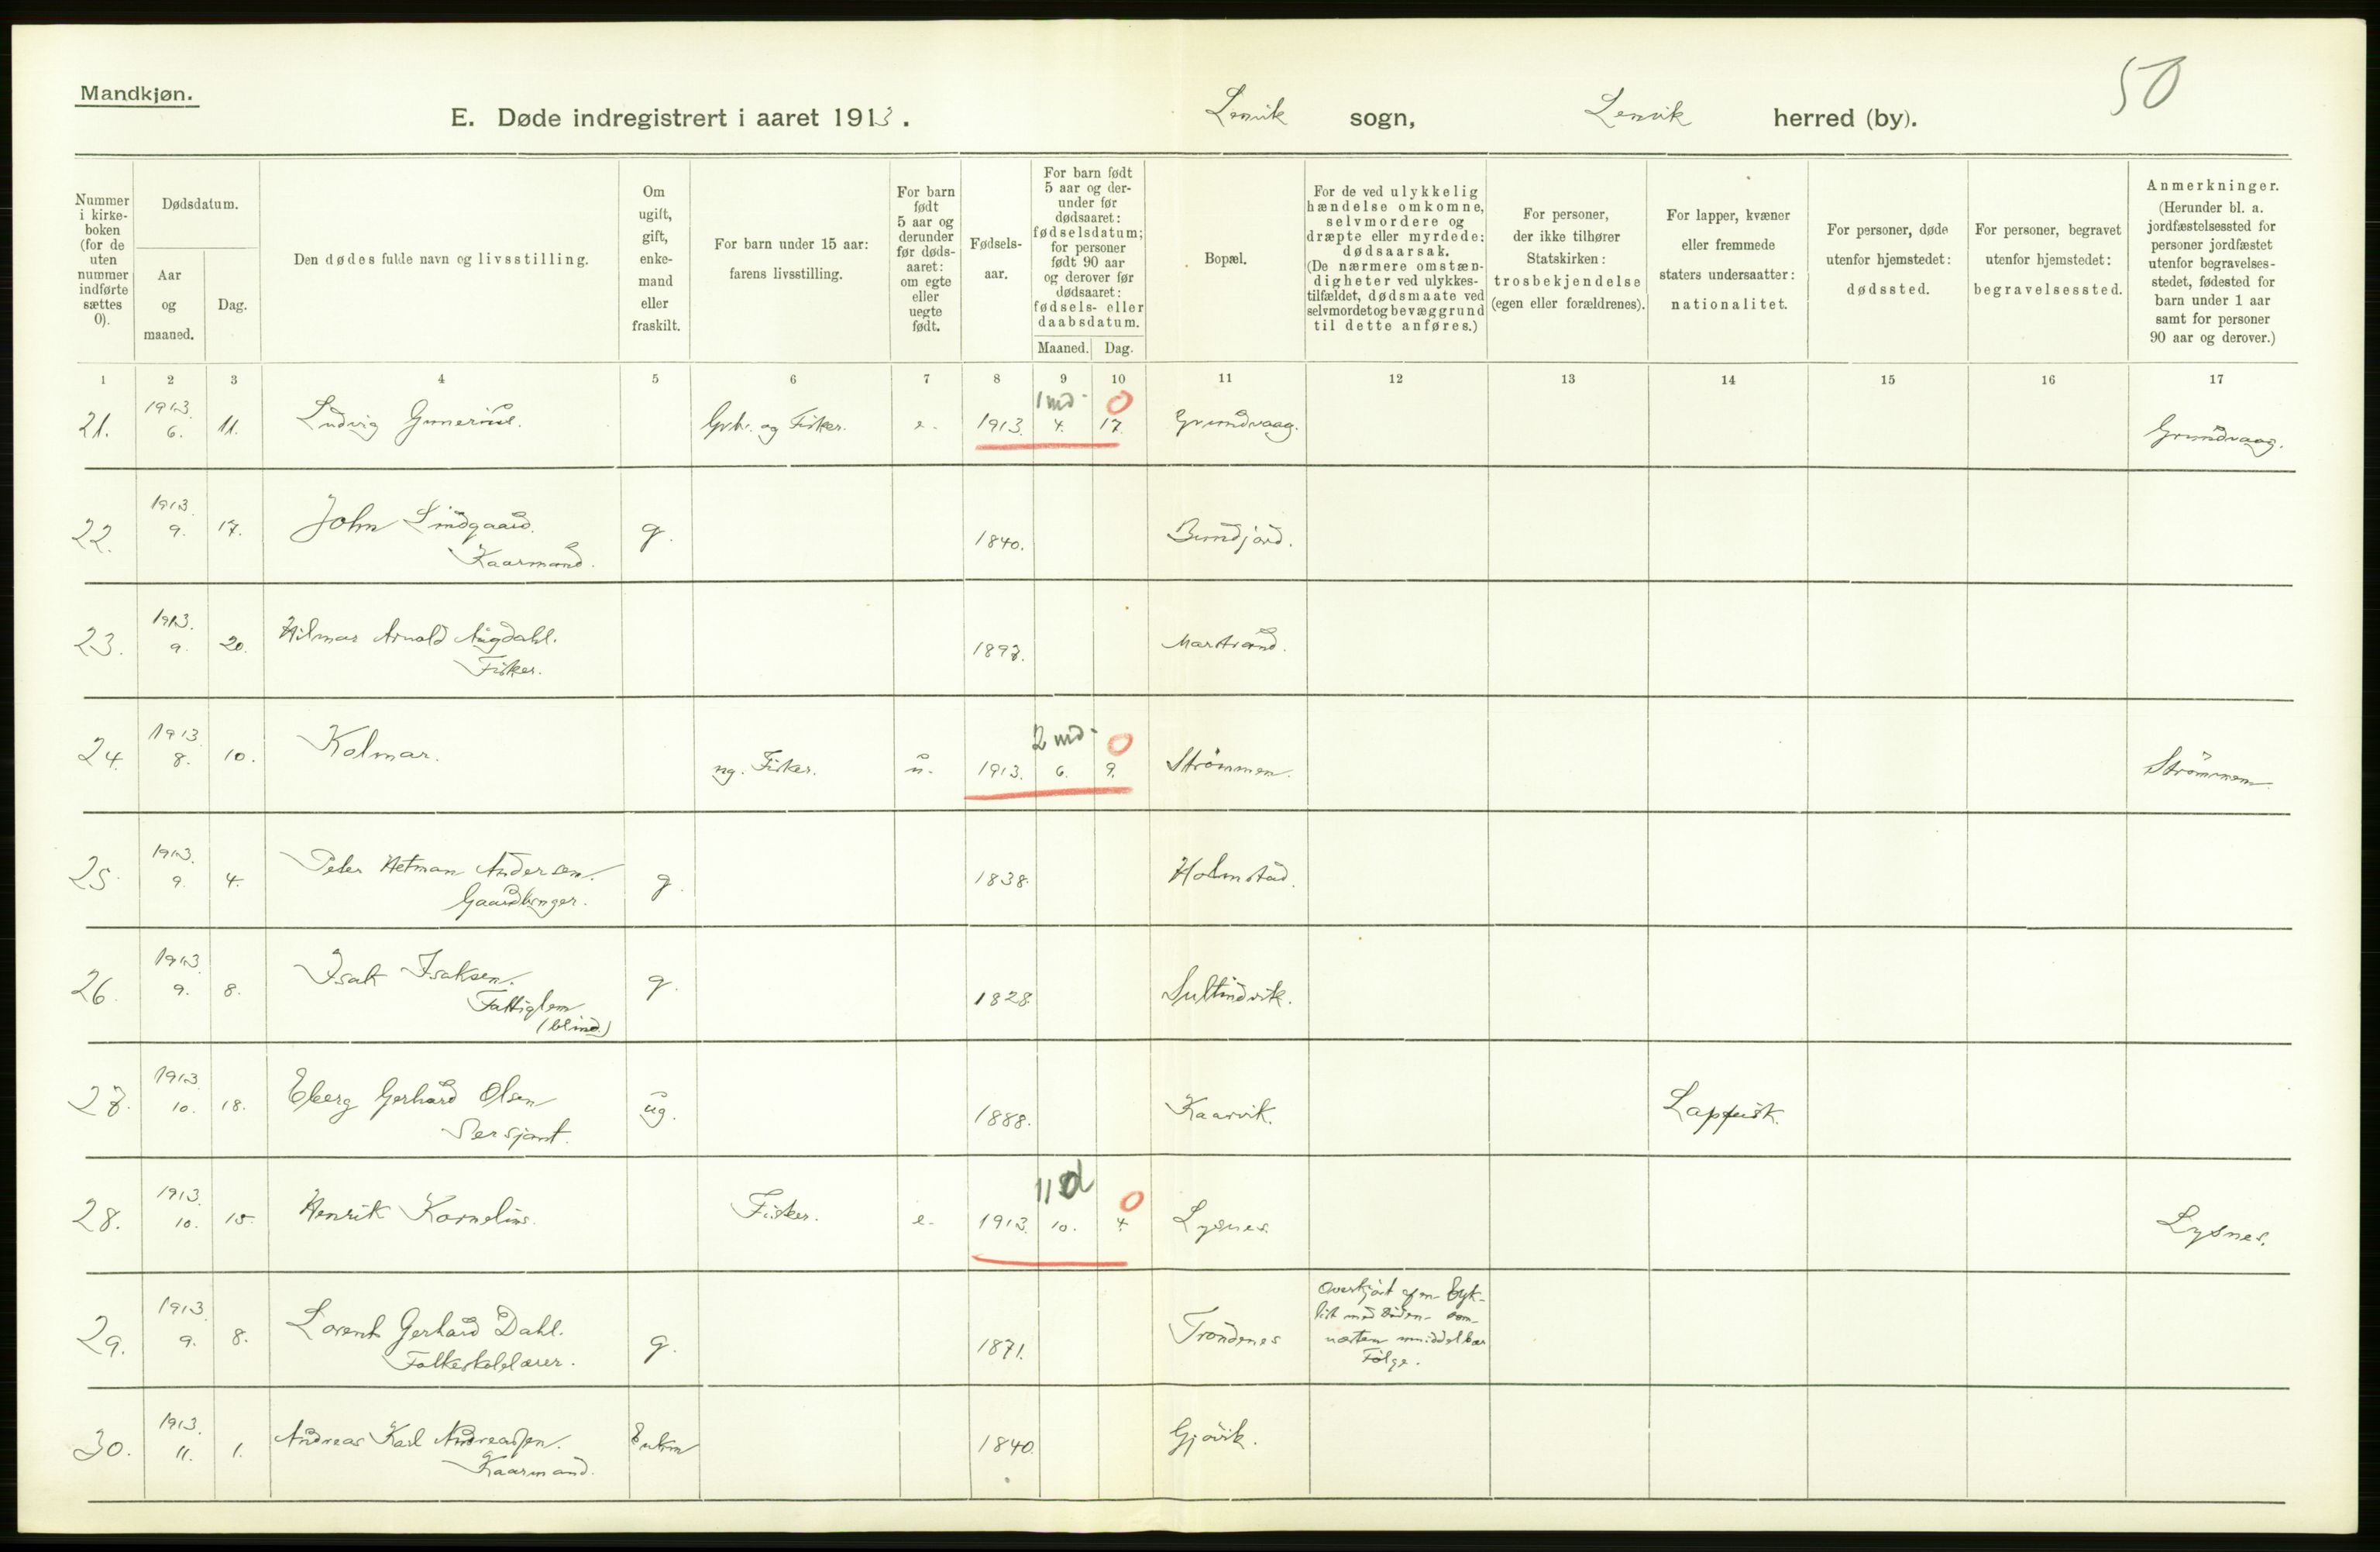 Mandkjøn.
50
E. Døde indregistrert i aaret 1913.
Lenvik sogn, Lenvik herred (by).
Nummer i kirkeboken (for de uten nummer indførte sættes 0).
Dødsdatum.
Aar og maaned.
Dag.
Den dødes fulde navn og livsstilling.
Om ugift, gift, enkemand eller fraskilt.
For barn under 15 aar: farens livsstilling.
For barn født 5 aar og derunder før dødsaaret: om egte eller uegte født.
Fødselsaar.
For barn født 5 aar og derunder før dødsaaret: fødselsdatum; for personer født 90 aar og derover før dødsaaret: fødsels- eller daabsdatum.
Maaned. Dag.
Bopæl.
For de ved ulykkelig hændelse omkomne, selvmordere og dræpte eller myrdede: dødsaarsak. (De nærmere omstændigheter ved ulykkestilfældet, dødsmaate ved selvmordet og bevæggrund til dette anføres.)
For personer, der ikke tilhører Statskirken: trosbekjendelse (egen eller forældrenes).
For lapper, kvæner eller fremmede staters undersaatter: nationalitet.
For personer, døde utenfor hjemstedet: dødssted.
For personer, begravet utenfor hjemstedet: begravelsessted.
Anmerkninger. (Herunder bl. a. jordfæstelsessted for personer jordfæstet utenfor begravelsesstedet, fødested for barn under 1 aar samt for personer 90 aar og derover.)
1 2 3 4 5 6 7 8 9 10 11 12 13 14 15 16 17
1913. 1 md- 0
21. 6. 11. Ludvig Gunerius. Grbr. og Fisker. e. 1913. 4. 17. Grundvaag. Grundvaag.
1913.
22. 9. 17. John Lindgaard. g. 1840. Bundjord.
Kaarmand.
1913.
23. 9. 20. Hilmar Arnold Augdahl. 1893. Marstrand.
Fisker.
1913 2 md- 0
24. 8. 10. Kolmar. ug. Fisker. u. 1913. 6. 9. Strømmen. Strømmen.
1913.
25. 9. 4. Peter Hetman Andersen. g. 1838. Holmstad.
Gaardbruger.
1913
26. 9. 8. Isak Isaksen. g. 1828. Sultindvik.
Fattiglem
(blind.)
1913
27. 10. 18. Eberg Gerhard Olsen ug. 1888. Kaarvik. Lappisk.
Sersjant.
1913. 11 d 0
28. 10. 15. Henrik Kornelius. Fisker. e. 1913. 10. 4. Lysnes. Lysnes.
1913.
29. 9. 8. Lorents Gerhard Dahl. g. 1871. Trondenes
Folkeskolelærer.
Overkjørt af en Cyk-
list med Døden som
næsten umiddelbar
Følge.
1913.
30. 11. 1. Andreas Karl Andreassen. Enkm 1840. Gjøvik.
Kaarmand.